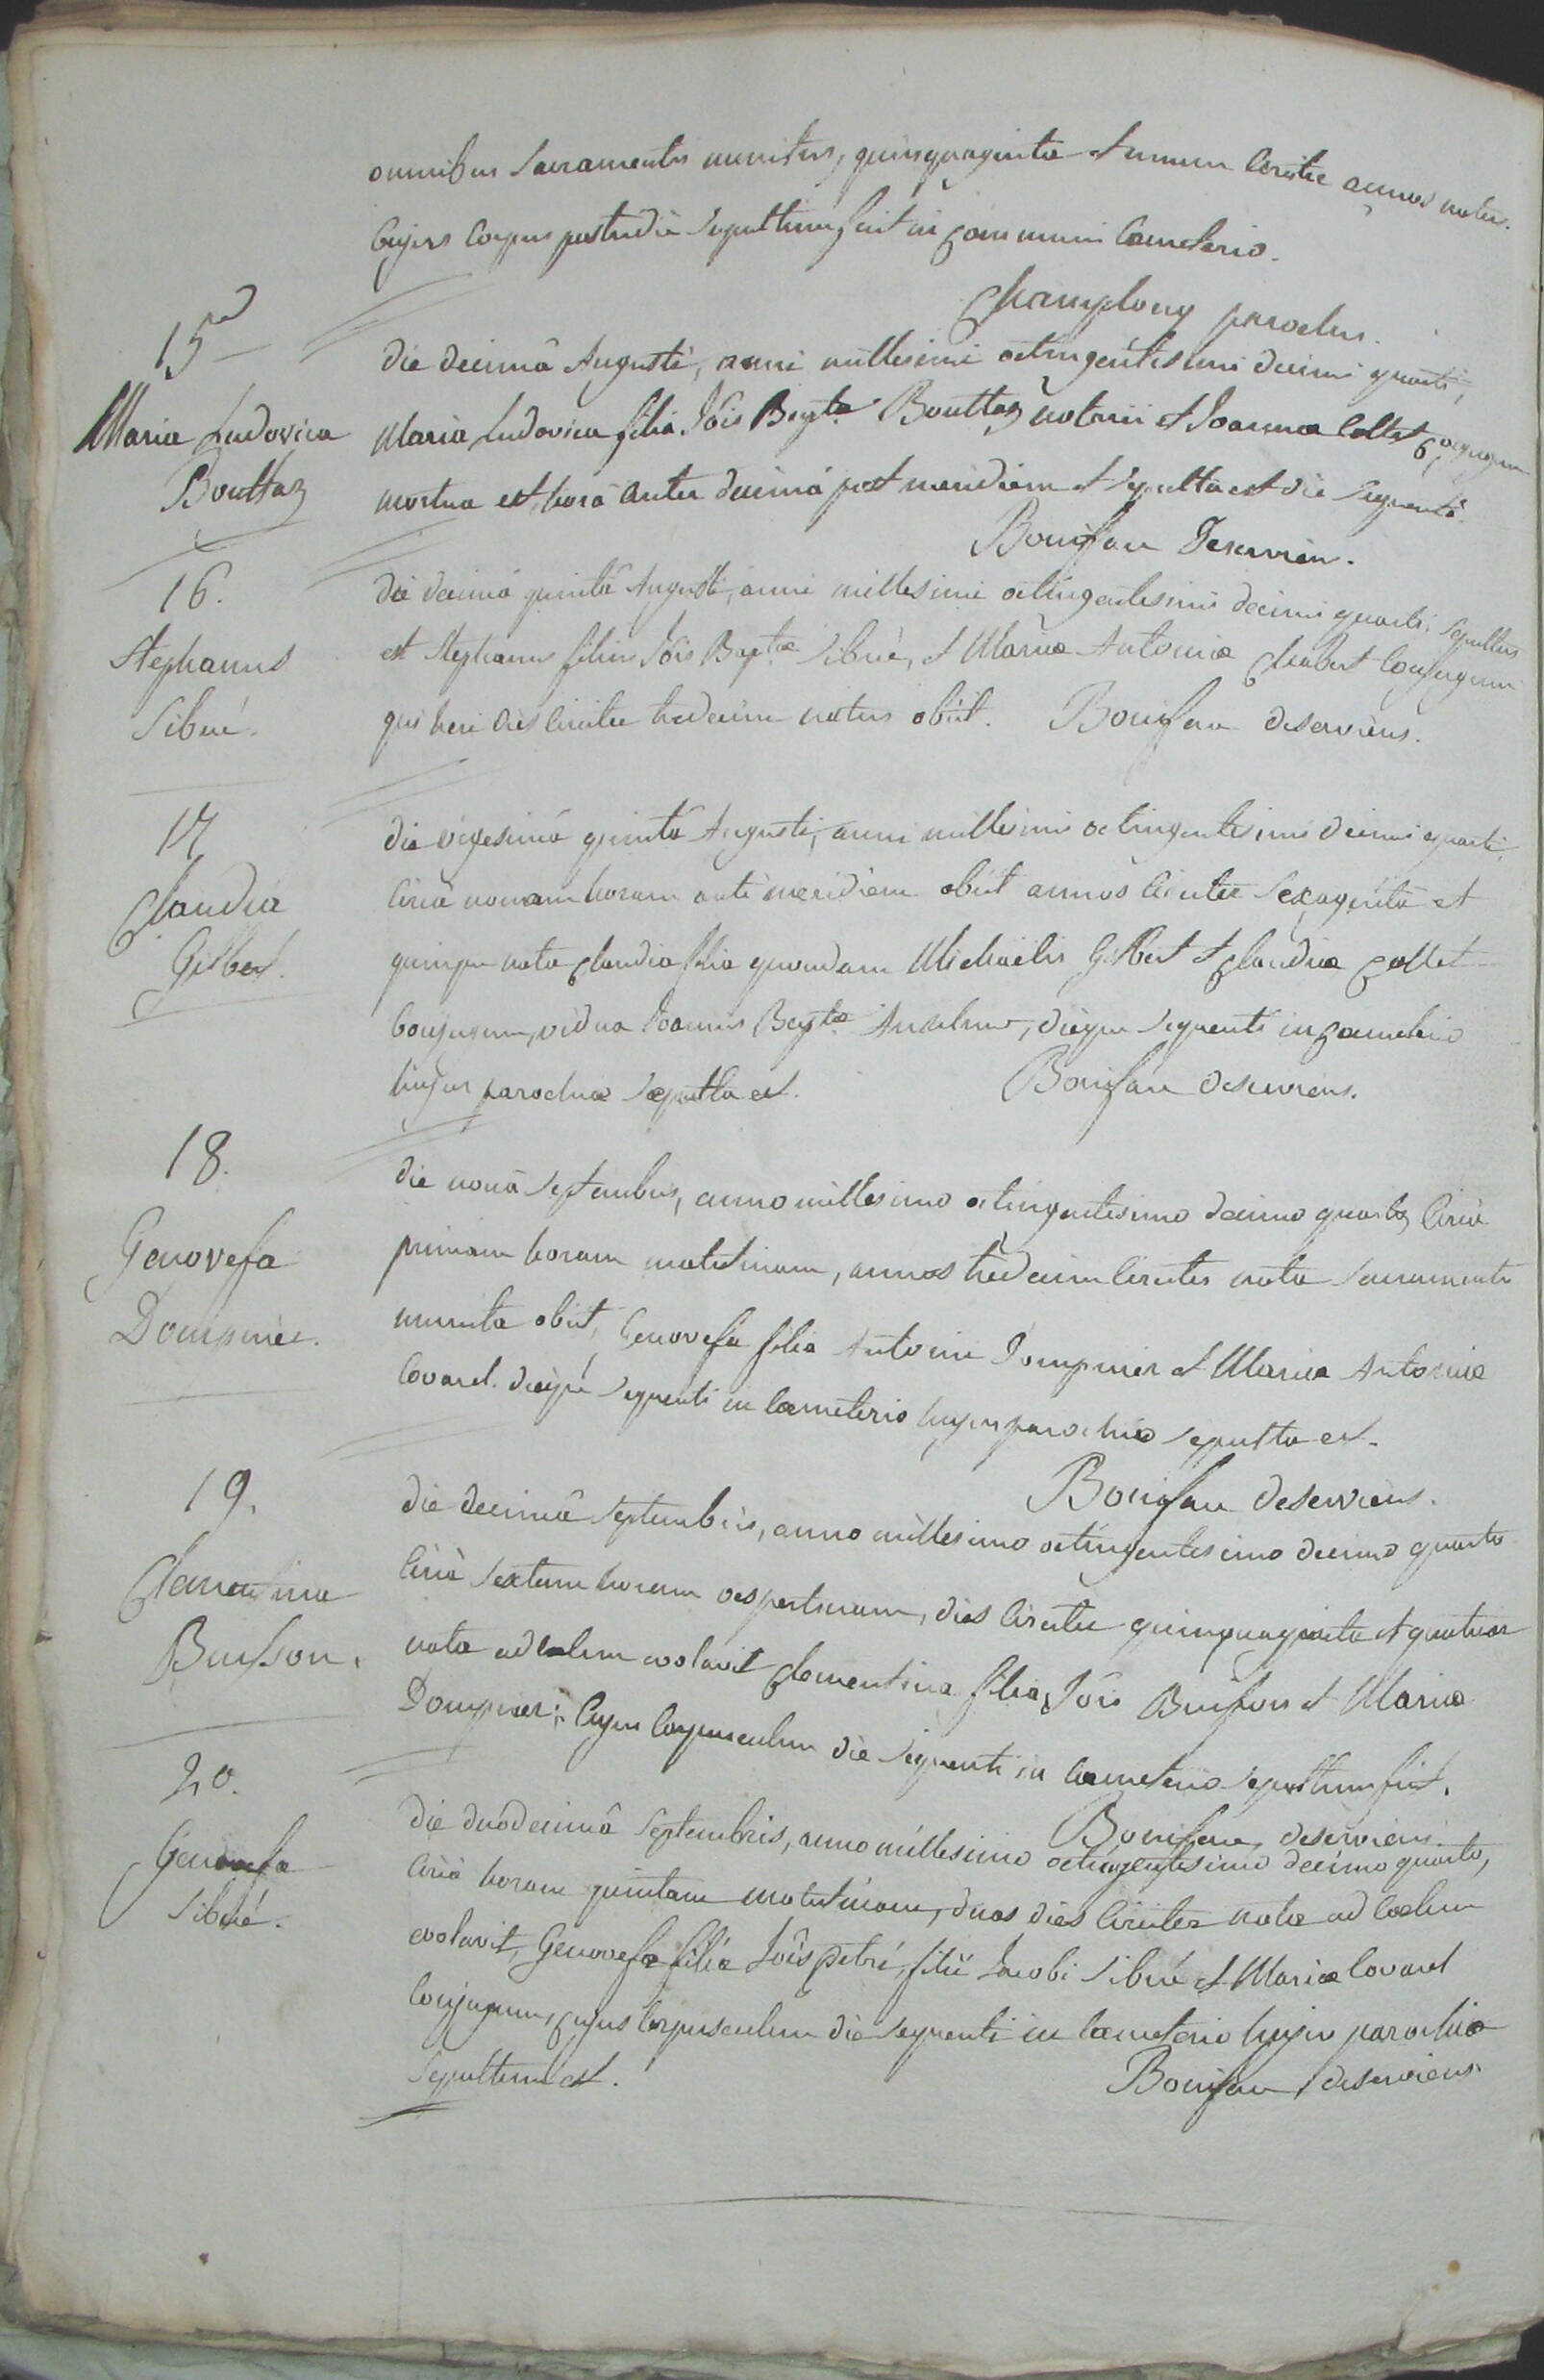 omnibus Sacramentis munitus, quinquaginta et unum Circiter annos natus.
Cujus Corpus postridie Sepultum fuit in Communi Cœmeterio.
Champlong parochus.
15
Maria Ludovica
Bouttaz
die decimâ Augusti, anni millesimi octingentesimi decimi quarti,
Maria Ludovica filia Jõis Bapt.æ Bouttaz notarii et Joannæ Collet Conjugum
mortua est, horâ Circiter decimâ post meridiem et Sepulta est die Sequenti.
Bonifau Deserviens.
16.
Stephanus
Sibué.
die decimâ quintâ Augusti, anni millesimi octingentesimi decimi quarti, Sepultus
est Stephanus filius Jõis Bapt.æ Sibué, et Mariæ Antoniæ Chabert Conjugum
qui heri dies Circiter tredecim natus obiit. Bonifau deserviens.
17
Claudia
Gilbert.
die vigesimâ quintâ Augusti, anni millesimi octingentesimi decimi quarti,
Circà nonam horam antè meridiem obiit annos Circiter Sexagintà et
quinque nata Claudia filia quondam Michaëlis Gilbert et Claudiæ Collet
Conjugum, vidua Joannis Bapt.æ Anselme, dièque Sequenti in Cœmeterio
hujus parochiæ Sepulta est. Bonifau deserviens.
18.
Genovefa
Dompnier.
die nonâ Septembris, anno millesimo octingentesimo decimo quarto, Circà
primam horam matutinam, annos tredecim Circiter nata Sacramentis
munita obiit, Genovefa filia Antonii Dompnier et Mariæ Antoniæ
Covarel. dieque Sequenti in Cœmeterio hujus parochiæ Sepulta est.
Bonifau deserviens.
19.
Clementina
Buisson.
die decimâ Septembris, anno millesimo octingentesimo decimo quarto
Circà Sextam horam vespertinam, dies Circiter quinquaginta et quatuor
nata ad Cœlum evolavit Clementina filia Jõis Buisson et Mariæ
Dompnier; Cujus Corpusculum die Sequenti in Cœmeterio Sepultum fuit.
Bonifau, deserviens.
20.
Genovefa
Sibué.
die duodecimâ Septembris, anno millesimo octingentesimo decimo quarto,
Circà horam quintam matutinam, duos dies Circiter nata ad Cœlum
evolavit, Genovefa filia Jõis petri, filii Jacobi Sibué et Mariæ Covarel
Conjugum, Cujus Corpusculum die Sequenti in Cœmeterio hujus parochiæ
Sepultum est. Bonifau, deserviens.